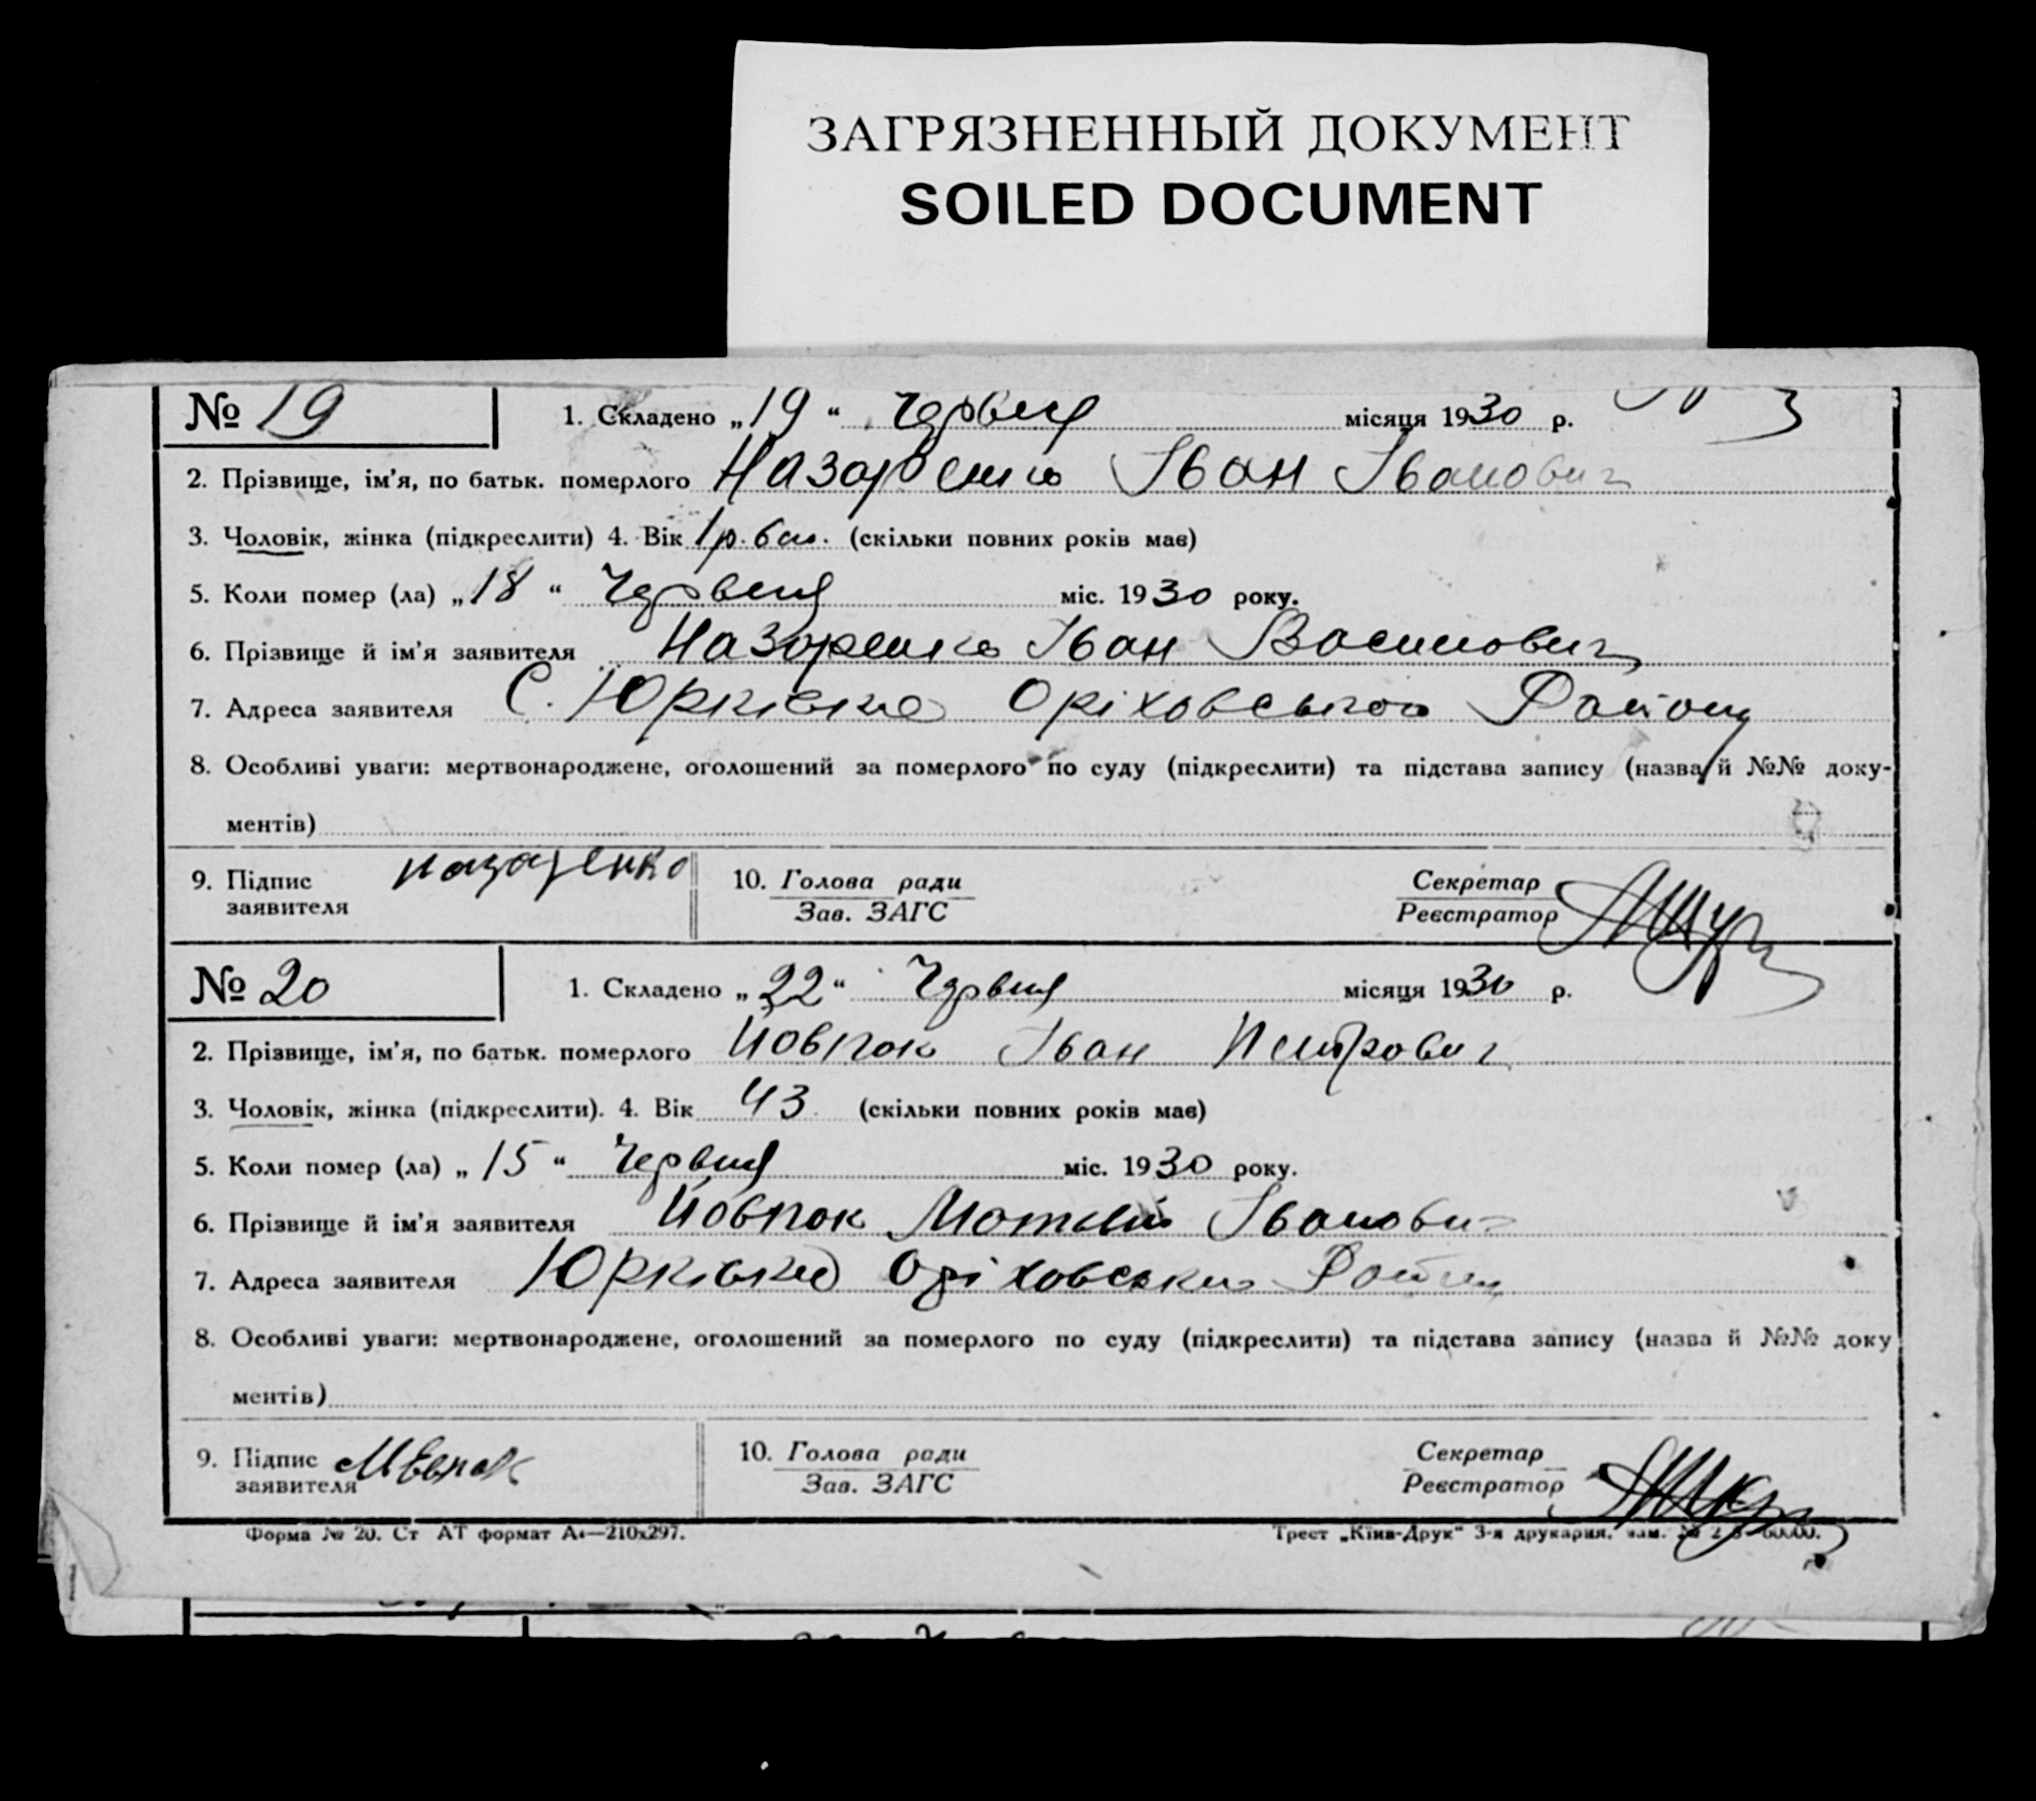 ЗАГРЯЗНЕННЫЙ ДОКУМЕНТ
SOILED DOCUMENT
№ 19 1. Складено „19“ Червня місяця 1930 р.
2. Прізвище, ім'я, по батьк. померлого Назаренко Іван Іванович
3. Чоловік, жінка (підкреслити) 4. Вік 1 р. 6 м. (скільки повних років має)
5. Коли помер (ла) „18“ Червня міс. 1930 року.
6. Прізвище й ім'я заявителя Назаренко Іван Василович
7. Адреса заявителя С. Юрківка Оріховського Району
8. Особливі уваги: мертвонароджене, оголошений за померлого по суду (підкреслити) та підстава запису (назва й №№ доку-
ментів)
9. Підпис заявителя Назаренко 10. Голова ради Секретар
Зав. ЗАГС Реєстратор
№ 20 1. Складено „22“ Червня місяця 1930 р.
2. Прізвище, ім'я, по батьк. померлого Йовпак Іван Петрович
3. Чоловік, жінка (підкреслити). 4. Вік 43 (скільки повних років має)
5. Коли помер (ла) „15“ Червня міс. 1930 року.
6. Прізвище й ім'я заявителя Йовпак Мотвій Іванович
7. Адреса заявителя Юрківка Оріховська Району
8. Особливі уваги: мертвонароджене, оголошений за померлого по суду (підкреслити) та підстава запису (назва й №№ доку
ментів)
9. Підпис заявителя 10. Голова ради Секретар
Зав. ЗАГС Реєстратор
Форма № 20. Ст АТ формат А4—210x297. Трест „Київ-Друк“ 3-я друкарня. зам. №